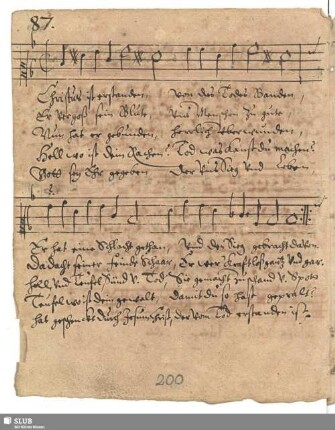 87.
Christus ist erstanden, von des Todes Banden,
Er vergoß sein Blute, Uns Menschen zu gute,
Nun hat er gebunden, herrlich uberwunden,
Hell wo ist dein Rachen? Tod was kanst du machen?
Gott sey Ehr gegeben, Der uns Sieg und Leben
Er hat eine Schlacht gethan, Und den Sieg gebracht davon
Da dacht seiner feinde Schaar, Er wer Krafftloß gantz und gar.
hell und Teufel Sünd v. Tod, Sie gemacht zu v. Spott
Teufel wo ist dein gewalt, damit du so hast gepralt?
hat geschenckt durch Jesum Christ, der vom Tod erstanden ist.
200
SLUB
Wir führen Wissen.